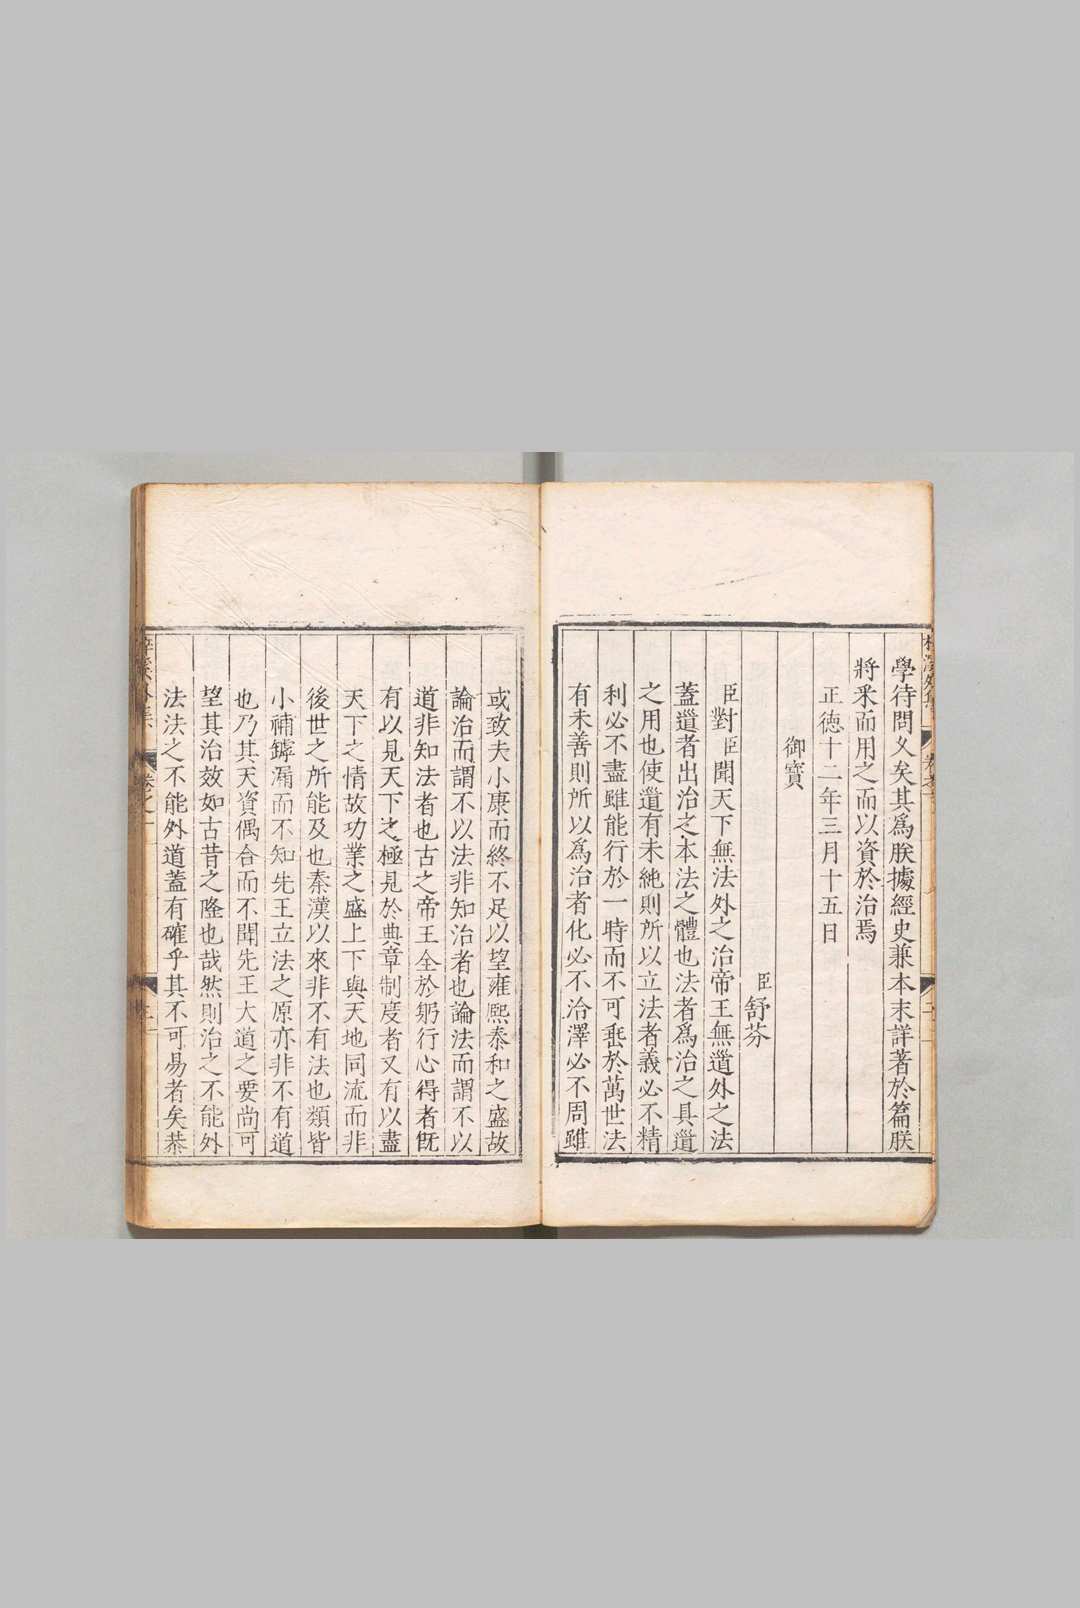 學待問久矣其爲朕據經史兼本末詳著於篇朕
將釆而用之而以資於治焉
正徳十二年三月十五日
御寳
臣舒芬
臣對臣聞天下無法外之治帝王無道外之法
蓋道者出治之本法之體也法者爲治之具道
之用也使道有未純則所以立法者義必不精
利必不盡雖能行於一時而不可垂於萬世法
有未善則所以爲治者化必不洽澤必不周雖
或致夫小康而終不足以望雍熙泰和之盛故
論治而謂不以法非知治者也論法而謂不以
道非知法者也古之帝王全於躬行心得者旣
有以見天下之極見於典章制度者又有以盡
天下之情故功業之盛上下與天地同流而非
後世之所能及也秦漢以來非不有法也類皆
小補罅漏而不知先王立法之原亦非不有道
也乃其天資偶合而不聞先王大道之要尚可
望其治效如古昔之隆也哉然則治之不能外
法法之不能外道蓋有確乎其不可易者矣恭
梓溪外集 卷之一